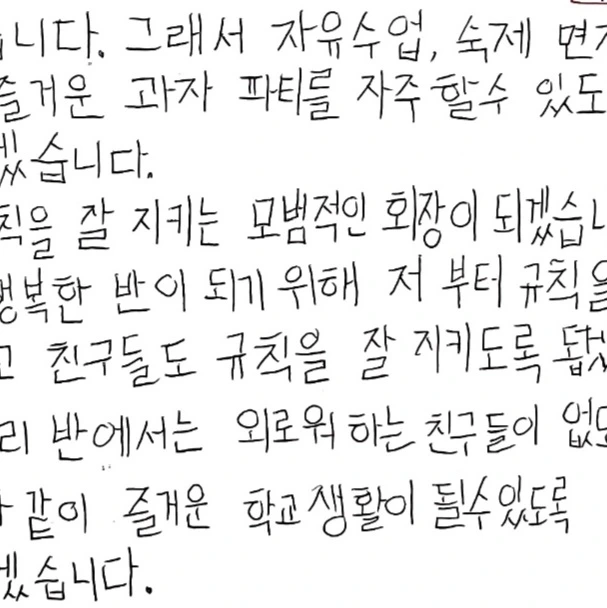 습니다. 그래서 자유수업, 숙제 면제
즐거운 과자 파티를 자주 할수 있도
겠습니다.
칙을 잘 지키는 모범적인 회장이 되겠습니
행복한 반이 되기 위해 저 부터 규칙을
고 친구들도 규칙을 잘 지키도록 돕겠
리 반에서는 외로워 하는 친구들이 없도
같이 즐거운 학교생활이 될수있도록
겠습니다.